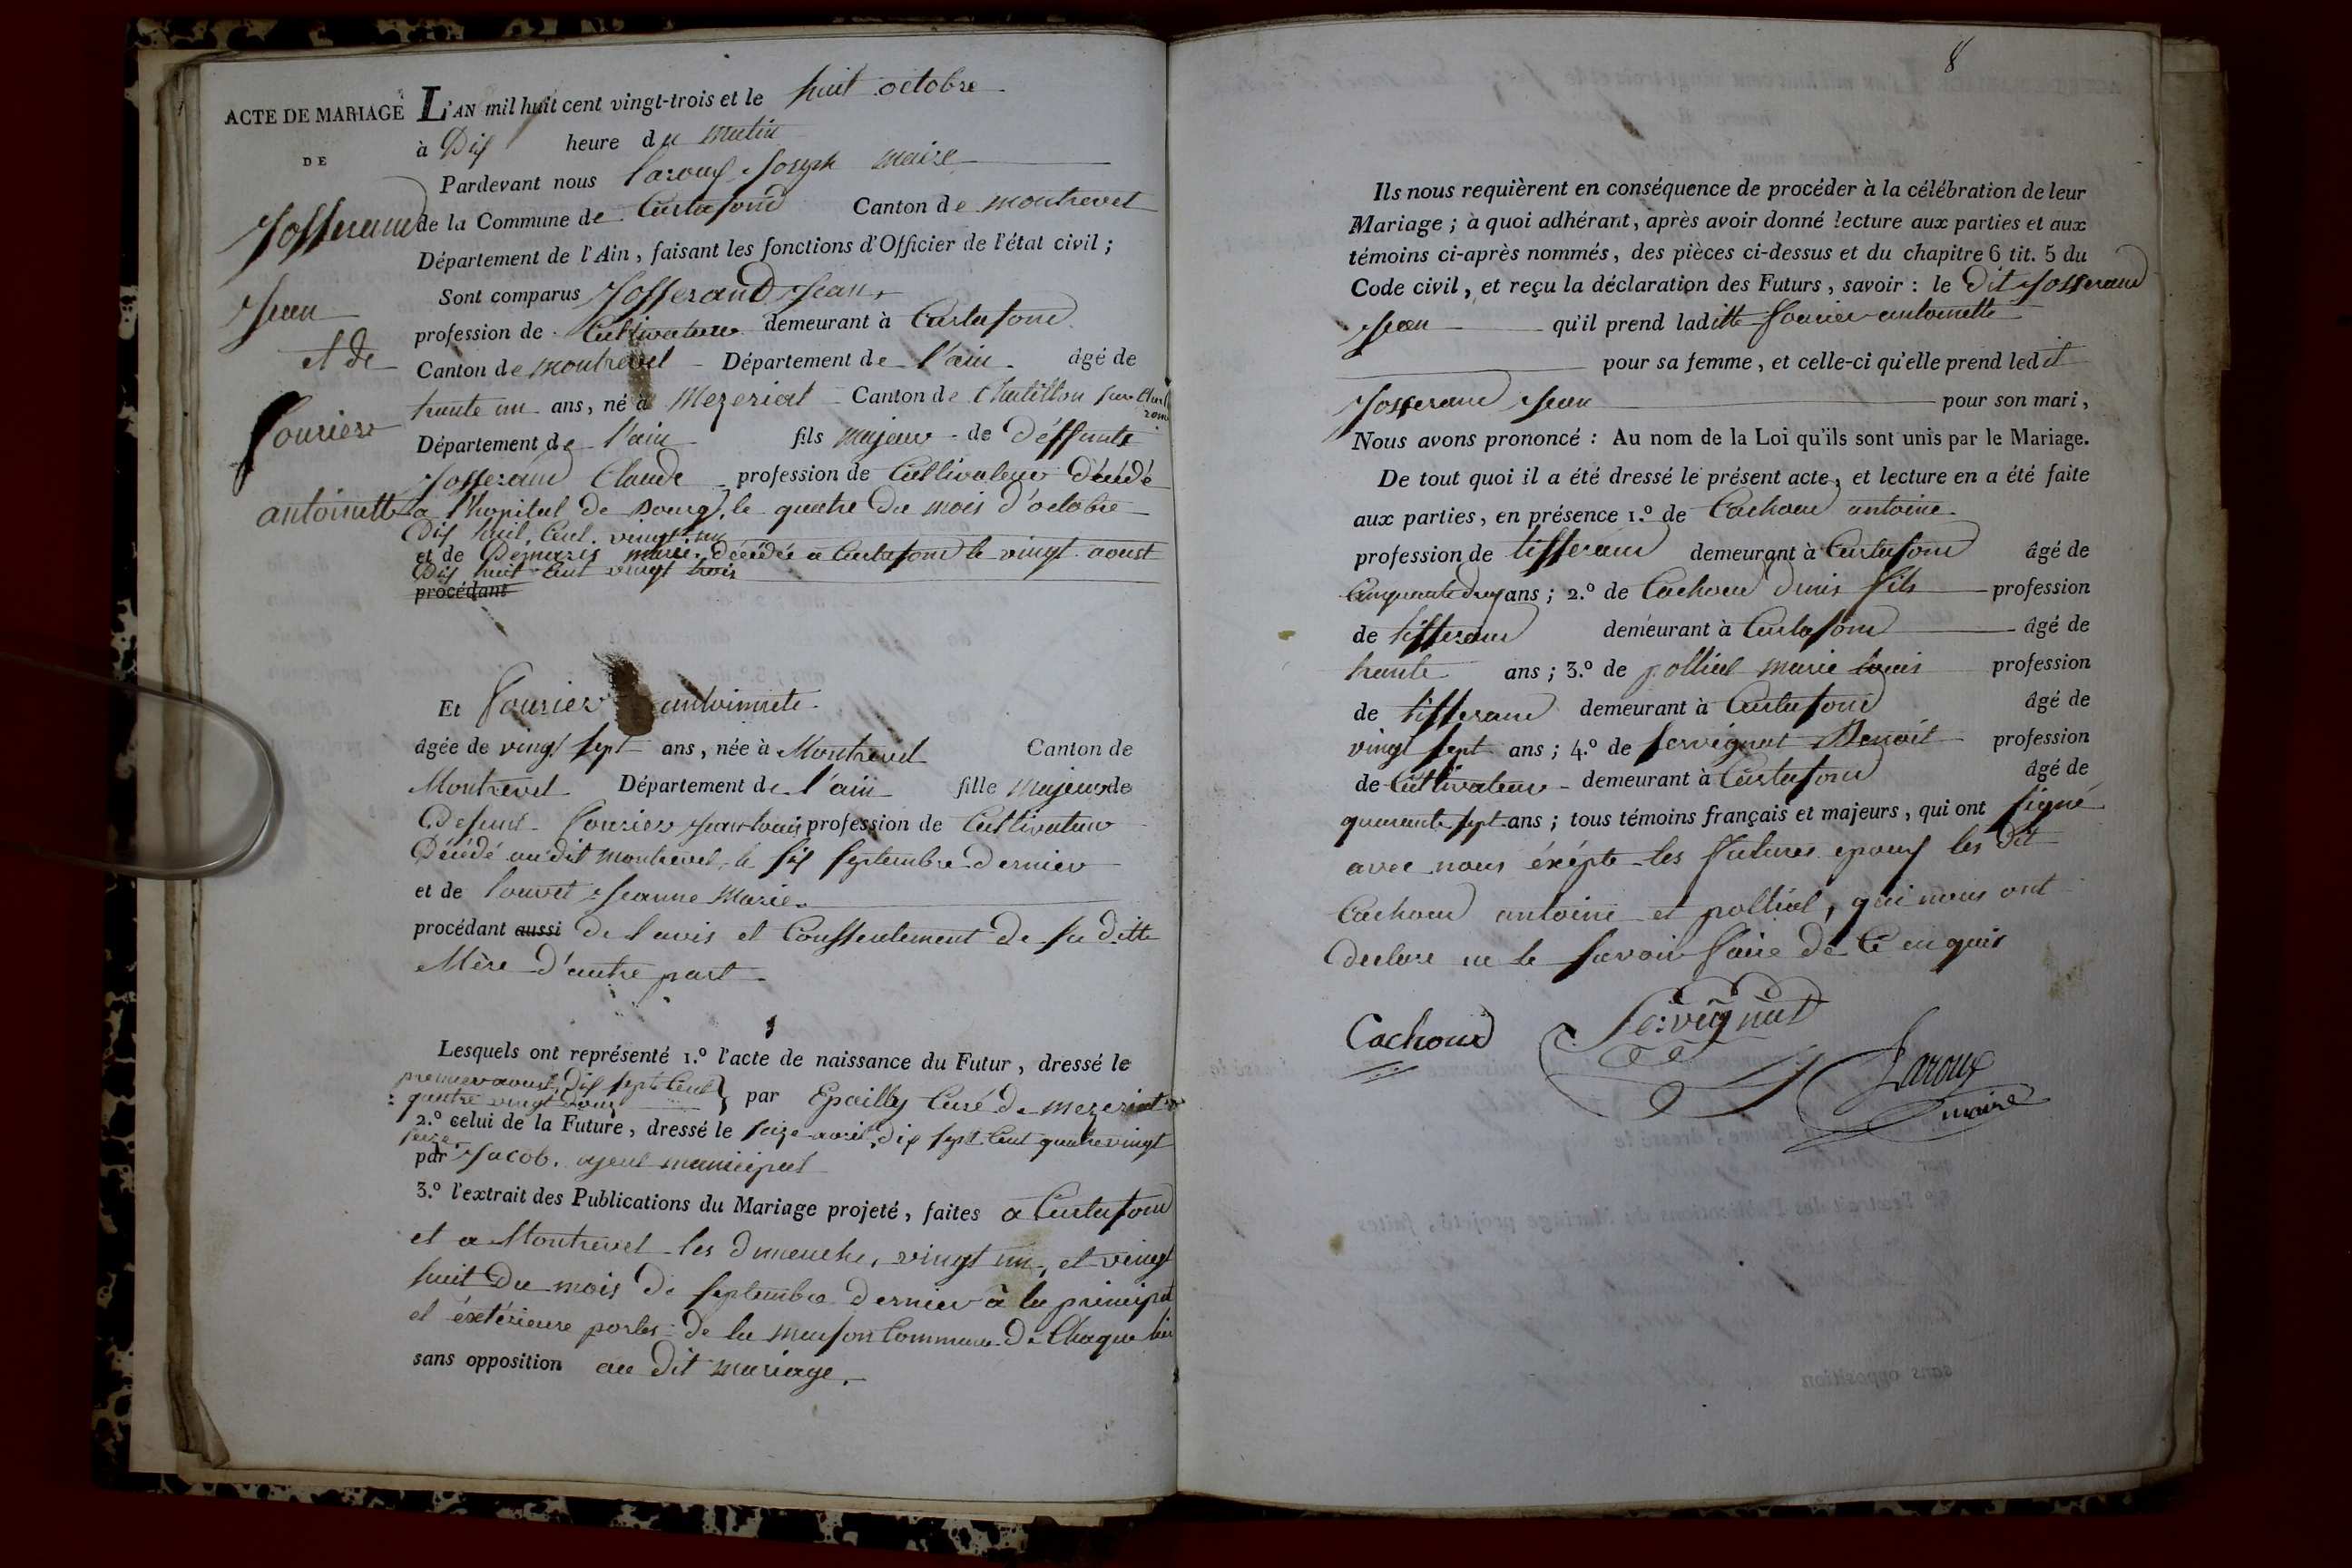 ACTE DE MARIAGE
DE
Josserand
Jean
et de
fourier
antoinette
L'AN mil huit cent vingt-trois et le huit octobre
à Dix heure du matin
Pardevant nous Laroux Joseph maire
de la Commune de Curtafond Canton de montrevel
Département de l'Ain, faisant les fonctions d'Officier de l'état civil ;
Sont comparus Josserand Jean,
profession de Cultivateur demeurant à Curtafond
Canton de montrevel Département de l'ain. âgé de
trente un ans, né à Mezeriat Canton de Chatillon sur Chala
ronne
Département de l'ain fils majeur de déffunte
Josserand Claude profession de Cultivateur Décédé
a l'hopital de Bourg, le quatre du mois d'octobre
Dix huit Cent vingt un
et de Demaris marie. décédée a Curtafond le vingt aoust
Dix huit Cent vingt trois
procédant
Et fourier antoinnete
âgée de vingt sept ans, née à Montrevel Canton de
Montrevel Département de l'ain fille majeur de
Defunt fourier Jean louis profession de Cultivateur
Décédé au dit montrevel, le six septembre dernier
et de louvet Jeanne Marie.
procédant aussi de l'avis et Conssentement de sa ditte
Mère d'autre part
Lesquels ont représenté 1.º l'acte de naissance du Futur, dressé le
premier aoust, dix sept Cent
quatre vingt douze par Epailly Curé de mezeriat
2.º celui de la Future, dressé le seize avril, dix sept Cent quatre vingt
seize.
par Jacob. agent municipal
3.º l'extrait des Publications du Mariage projeté, faites a Curtafond
et a Montrevel les dimenche, vingt un, et vingt
huit du mois de septembre dernier à la principal
et éxtérieure portes de la maison Commune de Chaque lieu
sans opposition au dit mariage.
8
Ils nous requièrent en conséquence de procéder à la célébration de leur
Mariage ; à quoi adhérant, après avoir donné lecture aux parties et aux
témoins ci-après nommés, des pièces ci-dessus et du chapitre 6 tit. 5 du
Code civil, et reçu la déclaration des Futurs, savoir : le dit Josserand
Jean qu'il prend laditte fourier antoinette
pour sa femme, et celle-ci qu'elle prend ledit
Josserand Jean pour son mari,
Nous avons prononcé : Au nom de la Loi qu'ils sont unis par le Mariage.
De tout quoi il a été dressé le présent acte, et lecture en a été faite
aux parties, en présence 1.º de Cachoud antoine
profession de tisserand demeurant à Curtafond âgé de
Cinquante deux ans ; 2.º de Cachoud denis fils profession
de tisserand demeurant à Curtafond âgé de
trente ans ; 3.º de polliat marie louis profession
de tisserand demeurant à Curtafond âgé de
vingt sept ans ; 4.º de servignat Benoit profession
de Cultivateur demeurant à Curtafond âgé de
quarante sept ans ; tous témoins français et majeurs, qui ont signé
avec nous éxépte les future epoux les dit
Cachoud antoine et polliat, qui nous ont
declare ne le savoir faire de Ce enquis
Cachoud
Servignat
Laroux
maire